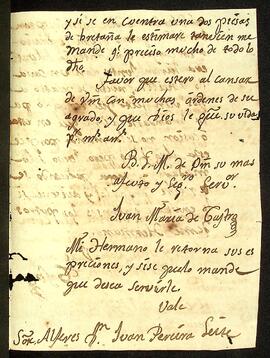 y si se en cuentra una dos piesas
de bretaña le estimare tambien me
mande qe preciso mucho de todo lo
dho.
favor que espero al cansar
de Vm con muchas ordenes de su
agrado, y que Dios le gue su vida
ms as
B. L. M. de Vm su mas
afecto y Sego Servor
Juan Maria de Castro
Mi Hermano le retorna sus es
preciones, y sise puelo mande
que desea servirle.
Vale
Sor Alferes Dn Juan Pereira Leite